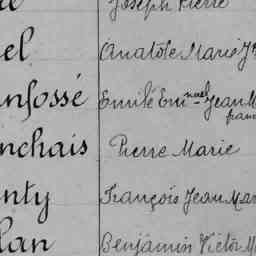 Joseph Pierre
el Anatole Marie J
nfossé Emile Em nuel Jean M
fran
nchais Pierre Marie
nty François Jean Mar
lan Benjamin Victor M